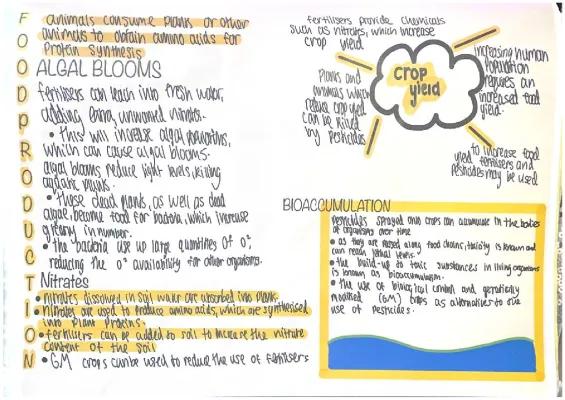 FOOD PRODUCTION
animals consume plants or other
animals to obtain amino acids for
protein synthesis
ALGAL BLOOMS
fertilisers can leach into fresh water,
adding unwanted nitrates.
• this will increase algal
which can cause algal blooms.
algal blooms reduce light levels, killing
aquatic plants.
• these dead plants, as well as dead
algae become food for bacteria, which increase
greatly in number.
• the bacteria use up large quantities of O²,
reducing the O² availability for other organisms.
Nitrates
• nitrates dissolved in soil water are absorbed into plants.
• nitrates are used to produce amino acids, which are synthesised
into plant proteins.
• fertilisers can be added to soil to increase the nitrate
content of the soil
• GM crops can be used to reduce the use of fertilisers
fertilisers provide chemicals
such as nitrates, which increase
crop yield
Plants and
animals which
reduce crop yield
can be killed
by pesticides
crop
yield
increasing human
population
requires an
increased food
yield.
to increase food
yield fertilisers and
pesticides may be used
BIOACCUMULATION
pesticides sprayed onto crops can accumulate in the bodies
of organisms over time
• as they are passed along food chains, toxicity is known and
can reach lethal levels.
• the build-up to toxic substances in living organisms
is known as bioaccumulation.
• the use of biological control and genetically
modified (GM) crops as alternatives to the
use of pesticides.